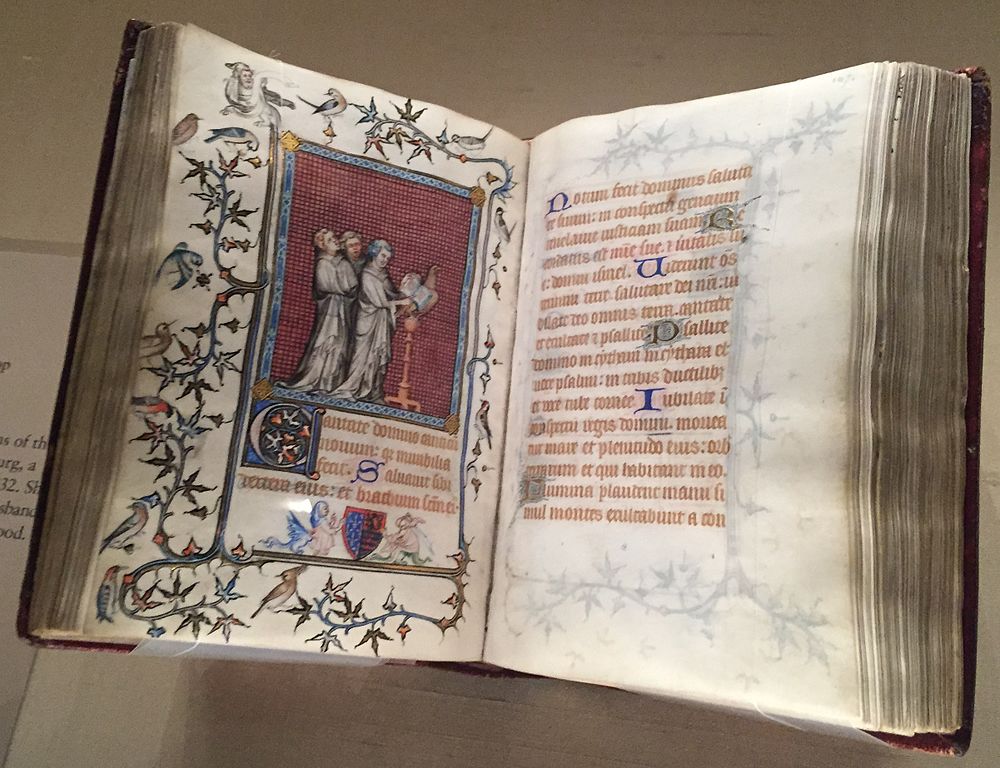 op
ns of th
urg, a
32. Sh
sband
ood.
Cantate domino canticū
novum: qr mirabilia
fecit. Saluavit sibi
dextera eius: et brachium scm ei
Notum fecit dominus saluta
re suum: in conspectu gencium
revelavit iusticiam suam. Re
cordatus est mie sue. et veritatis su
e: domui israel. Viderunt os
termini terre salutare dei nri: iu
bilate deo omnis terra. cantate
et exultate et psallite. Psallite
domino in cythara in cythara et
voce psalmi: in tubis ductilibz
et voce tube cornee. Iubilate ī
conspectu regis domini. movea
tur mare et plenitudo eius: orb
terrarum et qui habitant in eo.
Flumina plaudent manu si
mul montes exultabunt a con